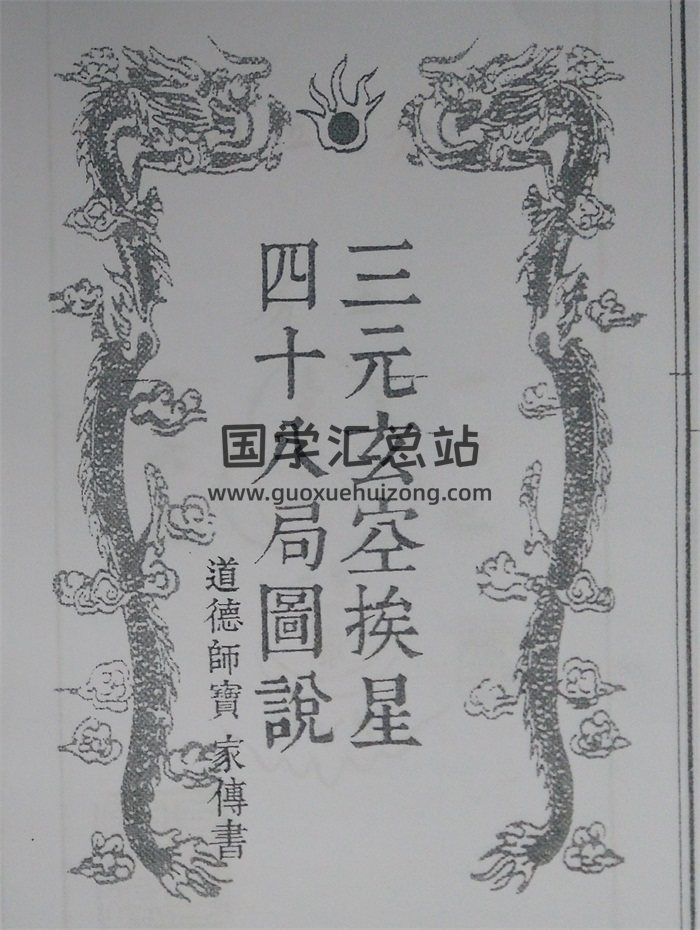 三元玄空挨星
四十八局圖說
道德師寶 家傳書
国学汇总站
www.guoxuehuizong.com